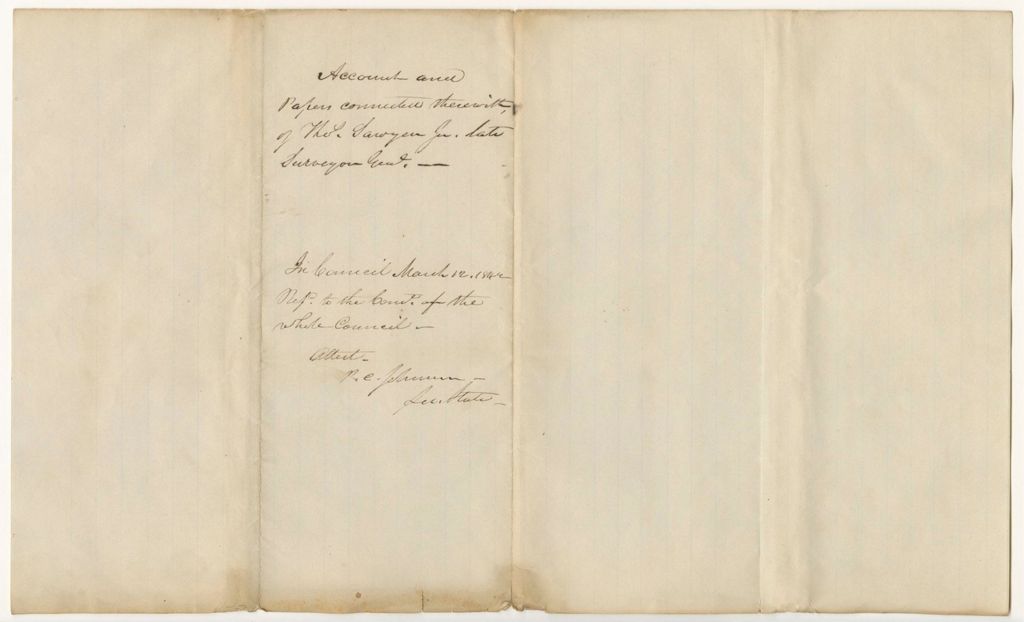 Account and
Papers connected therewith,
of Thos. Sawyer Jr. late
Surveyor Genl. —
In Council March 12. 1842
Refd. to the Comee. of the
whole Council —
Attest —
P. C. Johnson —
Sec. State —